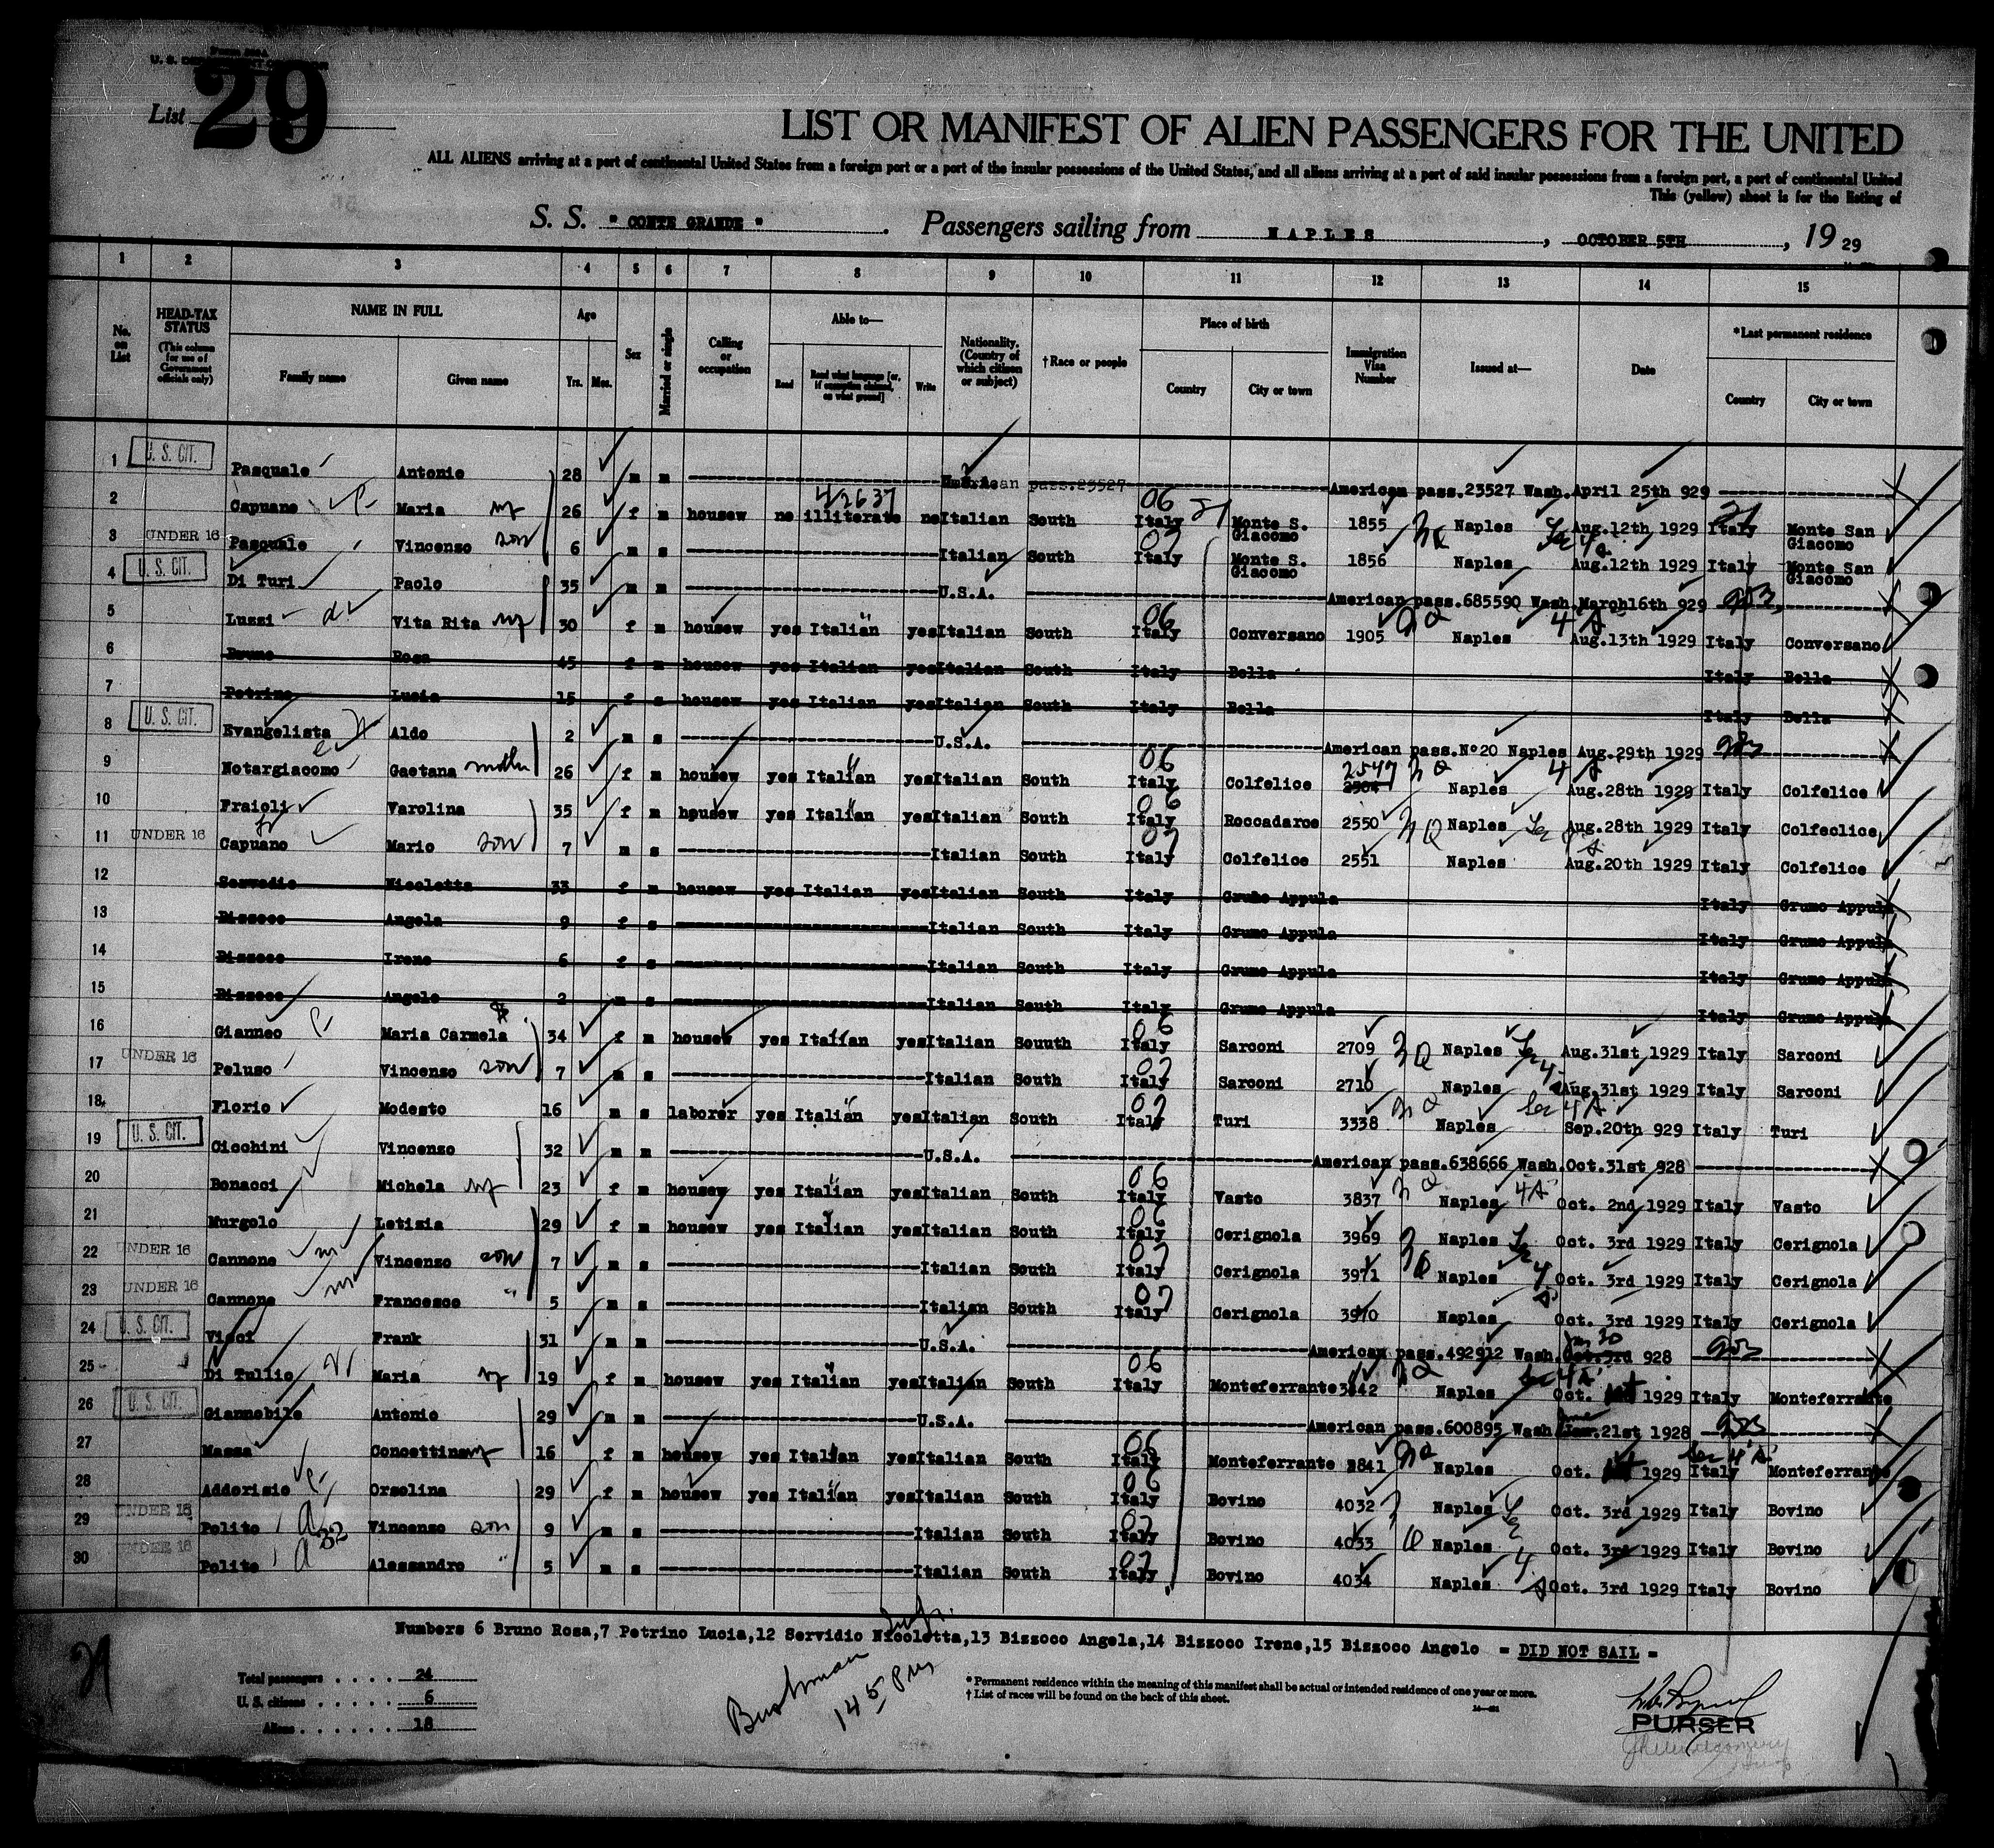 List 29
LIST OR MANIFEST OF ALIEN PASSENGERS FOR THE UNITED
ALL ALIENS arriving at a port of continental United States from a foreign port or a port of the insular possessions of the United States, and all aliens arriving at a port of said insular possessions from a foreign port, a port of continental United
This (yellow) sheet is for the listing of
S. S. "CONTE GRANDE". Passengers sailing from NAPLES, OCTOBER 5TH, 19 29
1 2 3 4 5 6 7 8 9 10 11 12 13 14 15
No. on List HEAD-TAX STATUS (This column for use of Government officials only) NAME IN FULL Family name Given name Age Yrs. Mos. Sex Married or single Calling or occupation Able to— Read Read what language [or, if exemption claimed, on what ground] Write Nationality. (Country of which citizen or subject) †Race or people Place of birth Country City or town Immigration Visa Number Issued at— Date *Last permanent residence Country City or town
1 U. S. CIT. Pasquale Antonio 28 m m American pass.23527 American pass.23527 Wash. April 25th 929
2 Capuano Maria wf 26 f m housew no illiterate no Italian South Italy Monte S. Giacomo 1855 Naples Aug.12th 1929 Italy Monte San Giacomo
3 UNDER 16 Pasquale Vincenso son 6 m s Italian South Italy Monte S. Giacomo 1856 Naples Aug.12th 1929 Italy Monte San Giacomo
4 U. S. CIT. Di Turi Paolo 35 m m U.S.A. American pass.685590 Wash. March16th 929
5 Luzzi Vita Rita wf 30 f m housew yes Italian yes Italian South Italy Conversano 1905 Naples Aug.13th 1929 Italy Conversano
6 Bruno Rosa 45 f m housew yes Italian yes Italian South Italy Bella Italy Bella
7 Petrino Lucia 15 f s housew yes Italian yes Italian South Italy Bella Italy Bella
8 U. S. CIT. Evangelista Aldo 2 m s U.S.A. American pass.Nº20 Naples Aug.29th 1929
9 Notargiacomo Gaetana 26 f m housew yes Italian yes Italian South Italy Colfelice 2547 Naples Aug.28th 1929 Italy Colfelice
10 Fraioli Varolina 35 f m housew yes Italian yes Italian South Italy Roccadarce 2550 Naples Aug.28th 1929 Italy Colfeclice
11 UNDER 16 Capuano Mario son 7 m s Italian South Italy Colfelice 2551 Naples Aug.20th 1929 Italy Colfelice
12 Servedio Nicoletta 33 f m housew yes Italian yes Italian South Italy Grumo Appula Italy Grumo Appula
13 Bizzoco Angela 9 f s Italian South Italy Grumo Appula Italy Grumo Appula
14 Bizzoco Irene 6 f s Italian South Italy Grumo Appula Italy Grumo Appula
15 Bizzoco Angelo 2 m s Italian South Italy Grumo Appula Italy Grumo Appula
16 Gianneo Maria Carmela 34 f m housew yes Italian yes Italian Souuth Italy Sarconi 2709 Naples Aug.31st 1929 Italy Sarconi
17 UNDER 16 Peluso Vincenso son 7 m s Italian South Italy Sarconi 2710 Naples Aug.31st 1929 Italy Sarconi
18 Florio Modesto 16 m s laborer yes Italian yes Italian South Italy Turi 3338 Naples Sep.20th 929 Italy Turi
19 U. S. CIT. Cicchini Vincenzo 32 m m U.S.A. American pass.638666 Wash. Oct.31st 928
20 Bonacci Michela wf 23 f m housew yes Italian yes Italian South Italy Vasto 3837 Naples Oct. 2nd 1929 Italy Vasto
21 Murgolo Letizia 29 f m housew yes Italian yes Italian South Italy Cerignola 3969 Naples Oct. 3rd 1929 Italy Cerignola
22 UNDER 16 Cannone Vincenso son 7 m s Italian South Italy Cerignola 3971 Naples Oct. 3rd 1929 Italy Cerignola
23 UNDER 16 Cannone Francesco " 5 m s Italian South Italy Cerignola 3970 Naples Oct. 3rd 1929 Italy Cerignola
24 U. S. CIT. Vicci Frank 31 m m U.S.A. American pass.492912 Wash. 928
25 Di Tullio Maria wf 19 f m housew yes Italian yes Italian South Italy Monteferrante 3842 Naples Oct. 1929 Italy Monteferrante
26 U. S. CIT. Giannobile Antonio 29 m m U.S.A. American pass.600895 Wash. 21st 1928
27 Massa Concettina wf 16 f m housew yes Italian yes Italian South Italy Monteferrante 3841 Naples Oct. 1929 Italy Monteferrante
28 Addorisio Orsolina 29 f m housew yes Italian yes Italian South Italy Bovino 4032 Naples Oct. 3rd 1929 Italy Bovino
29 UNDER 16 Polito Vincenso son 9 m s Italian South Italy Bovino 4033 Naples Oct. 3rd 1929 Italy Bovino
30 UNDER 16 Polito Alessandro " 5 m s Italian South Italy Bovino 4034 Naples Oct. 3rd 1929 Italy Bovino
Numbers 6 Bruno Rosa,7 Petrino Lucia,12 Servidio Nicoletta,13 Bizzoco Angela,14 Bizzoco Irene,15 Bizzoco Angelo = DID NOT SAIL =
Total passengers . . . . 24
U. S. citizens . . . . . 6
Aliens . . . . . . 18
145 pm
* Permanent residence within the meaning of this manifest shall be actual or intended residence of one year or more.
† List of races will be found on the back of this sheet.
PURSER